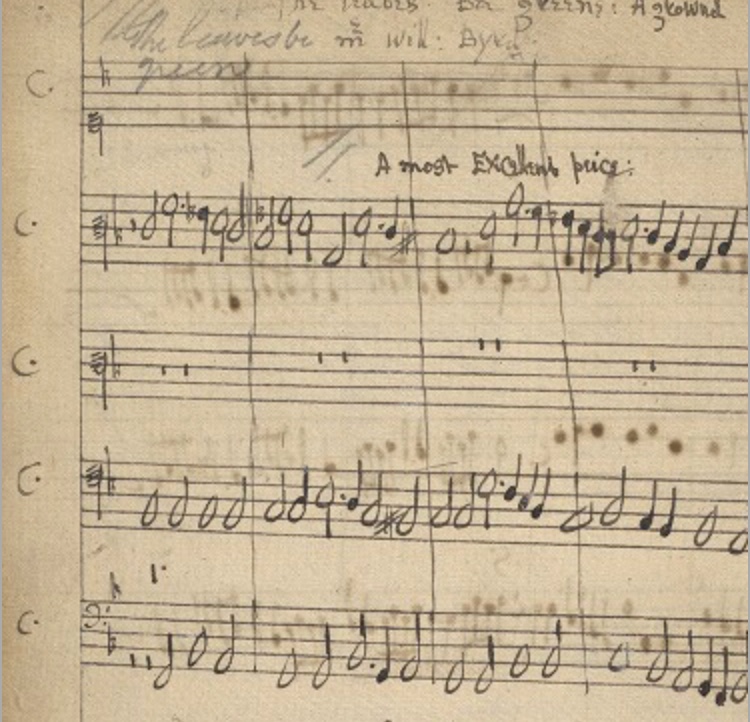 The leaves be greene: A grownd
The leaves be mr will: Byrd
greene
A most Excellent peice: